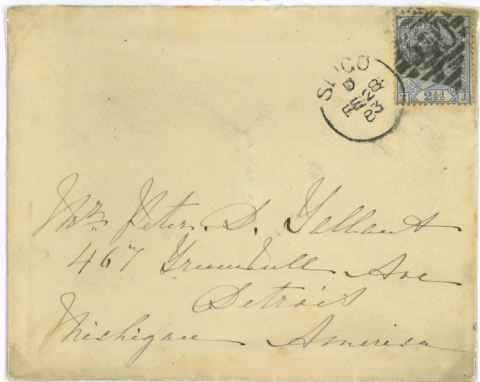 SLIGO
FE 28
83
2½d
Mr. Peter. D. Gallant
467 Trumbull Ave
Detroit
Michigan America